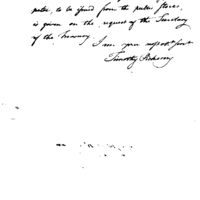 to be issued from the public stores,
is given on the request of the Secretary
of the Treasury.
I am your
Timothy Pickering